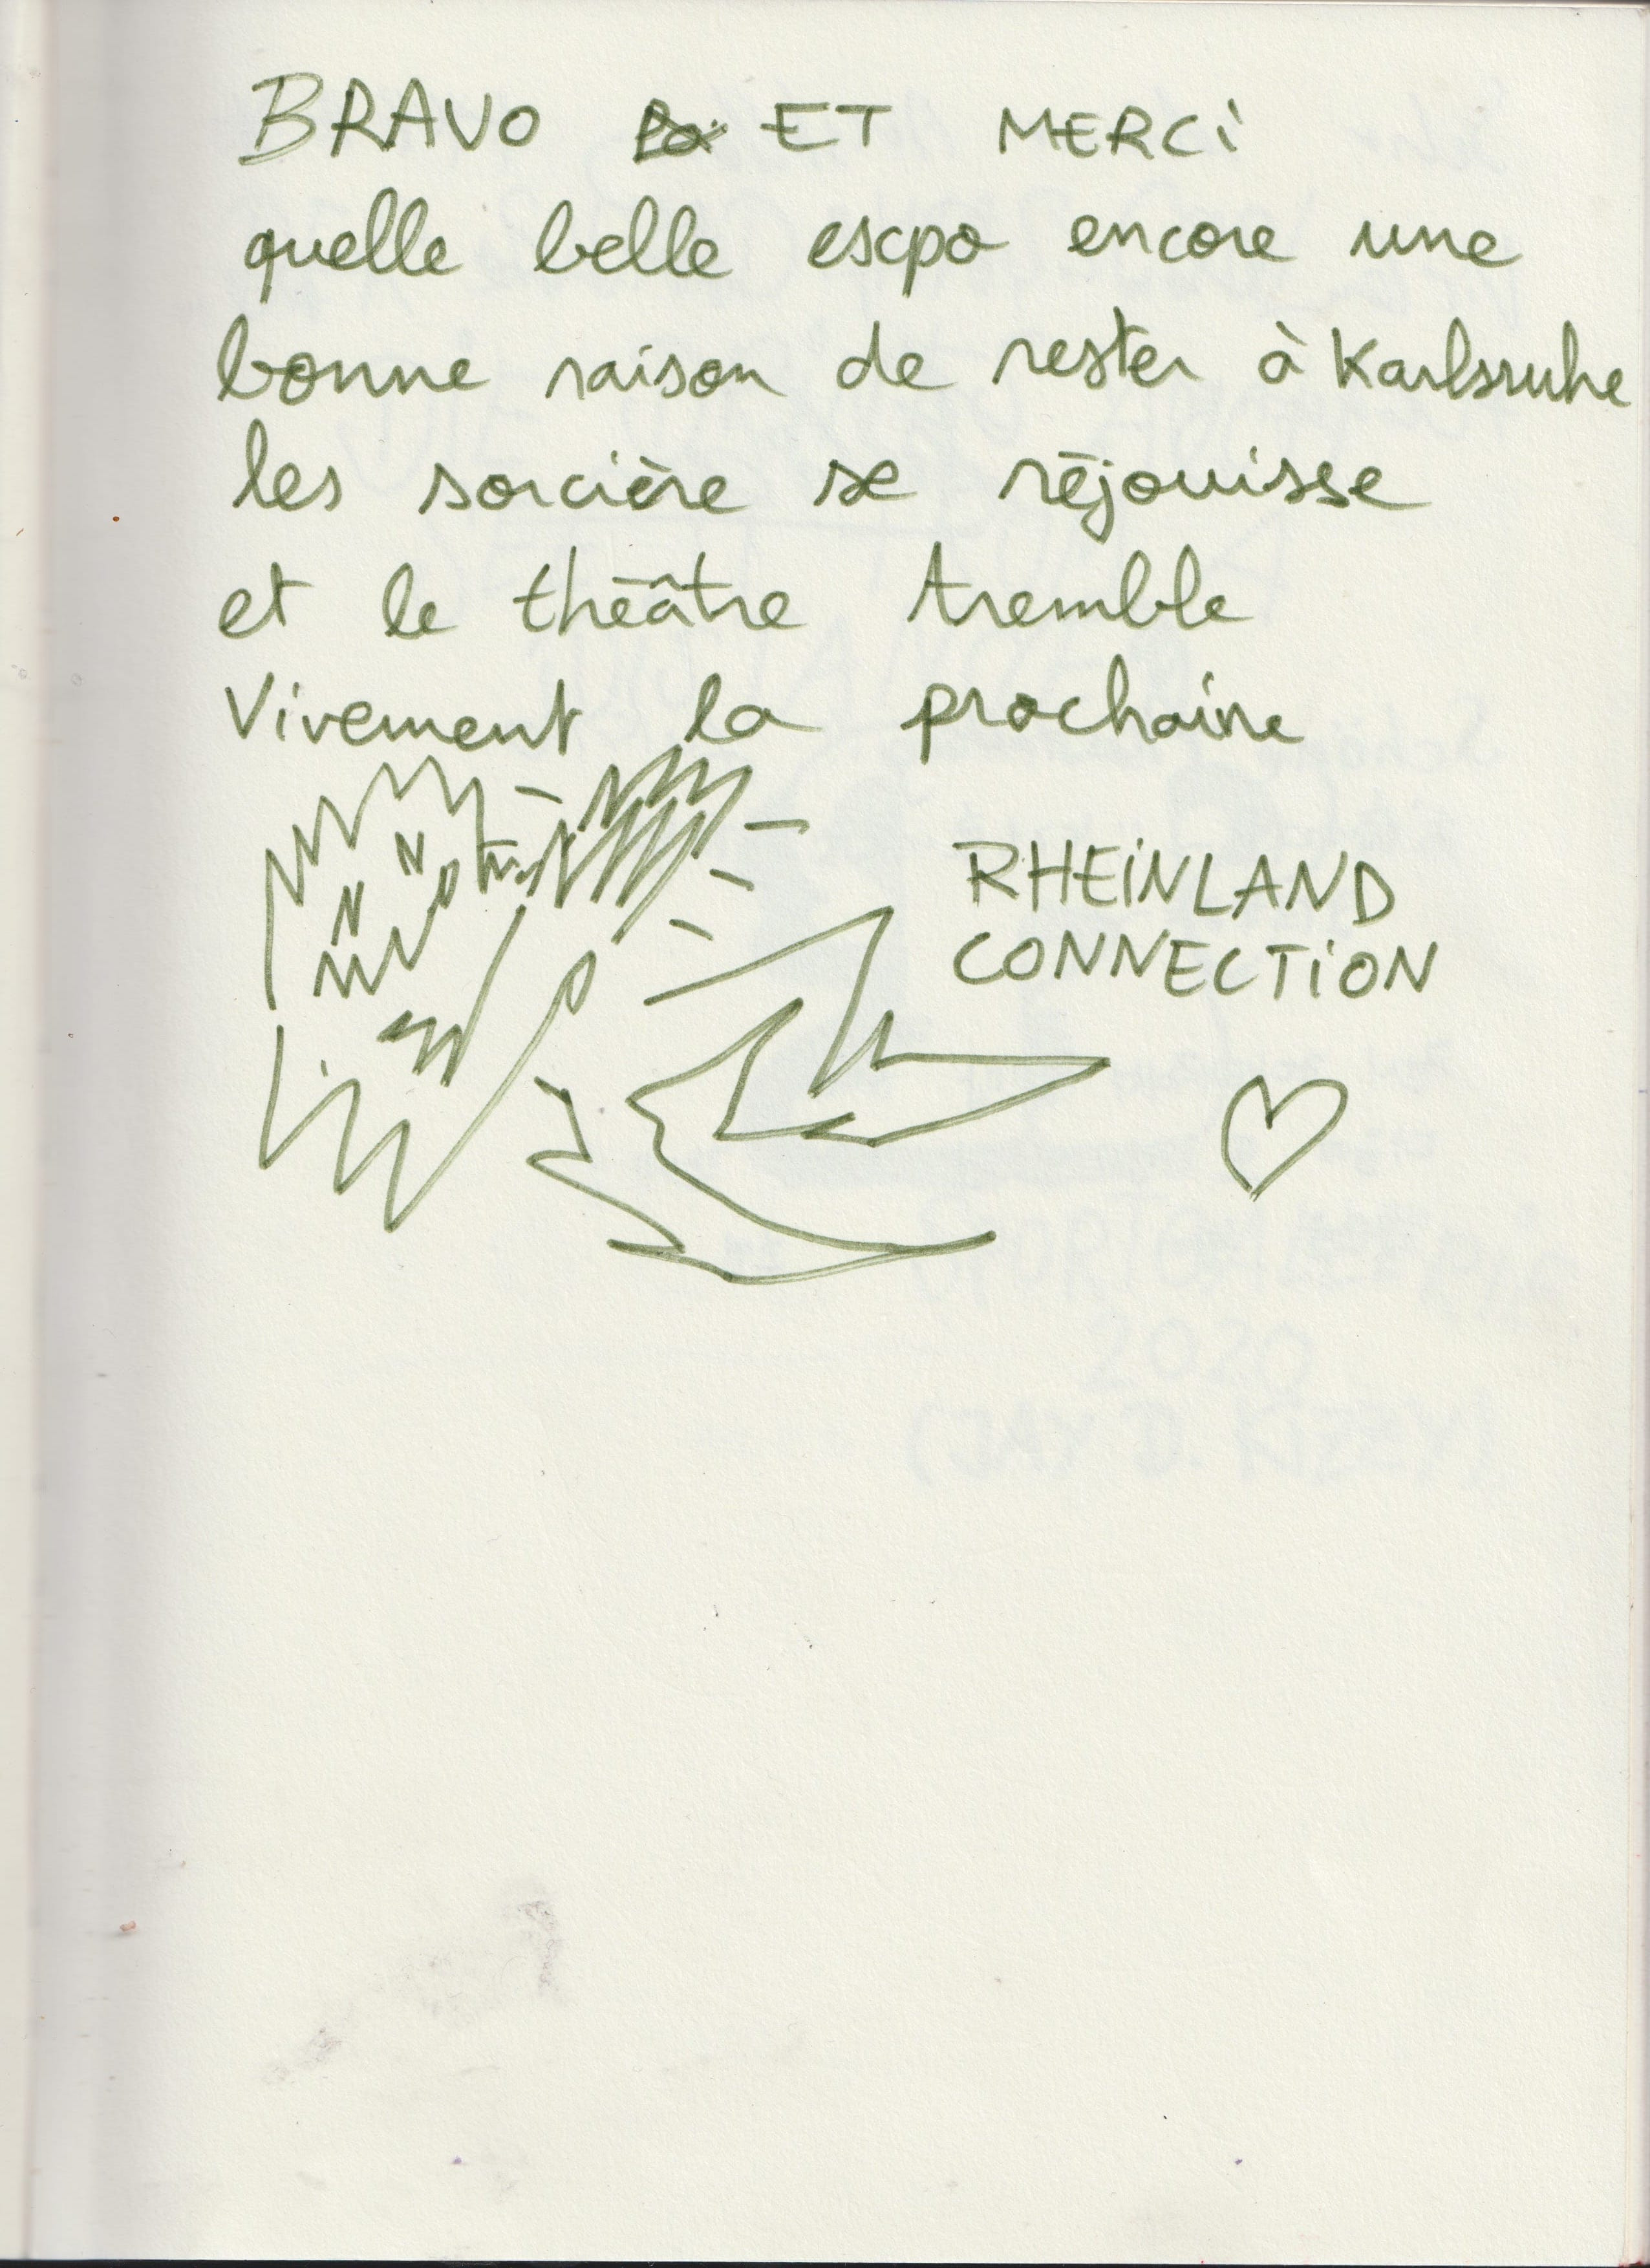 BRAVO ET MERCi
quelle belle expo encore une
bonne raison de rester à Karlsruhe
les sorcière se réjouisse
et le théâtre tremble
Vivement la prochaine
RHEiNLAND
CONNECTiON